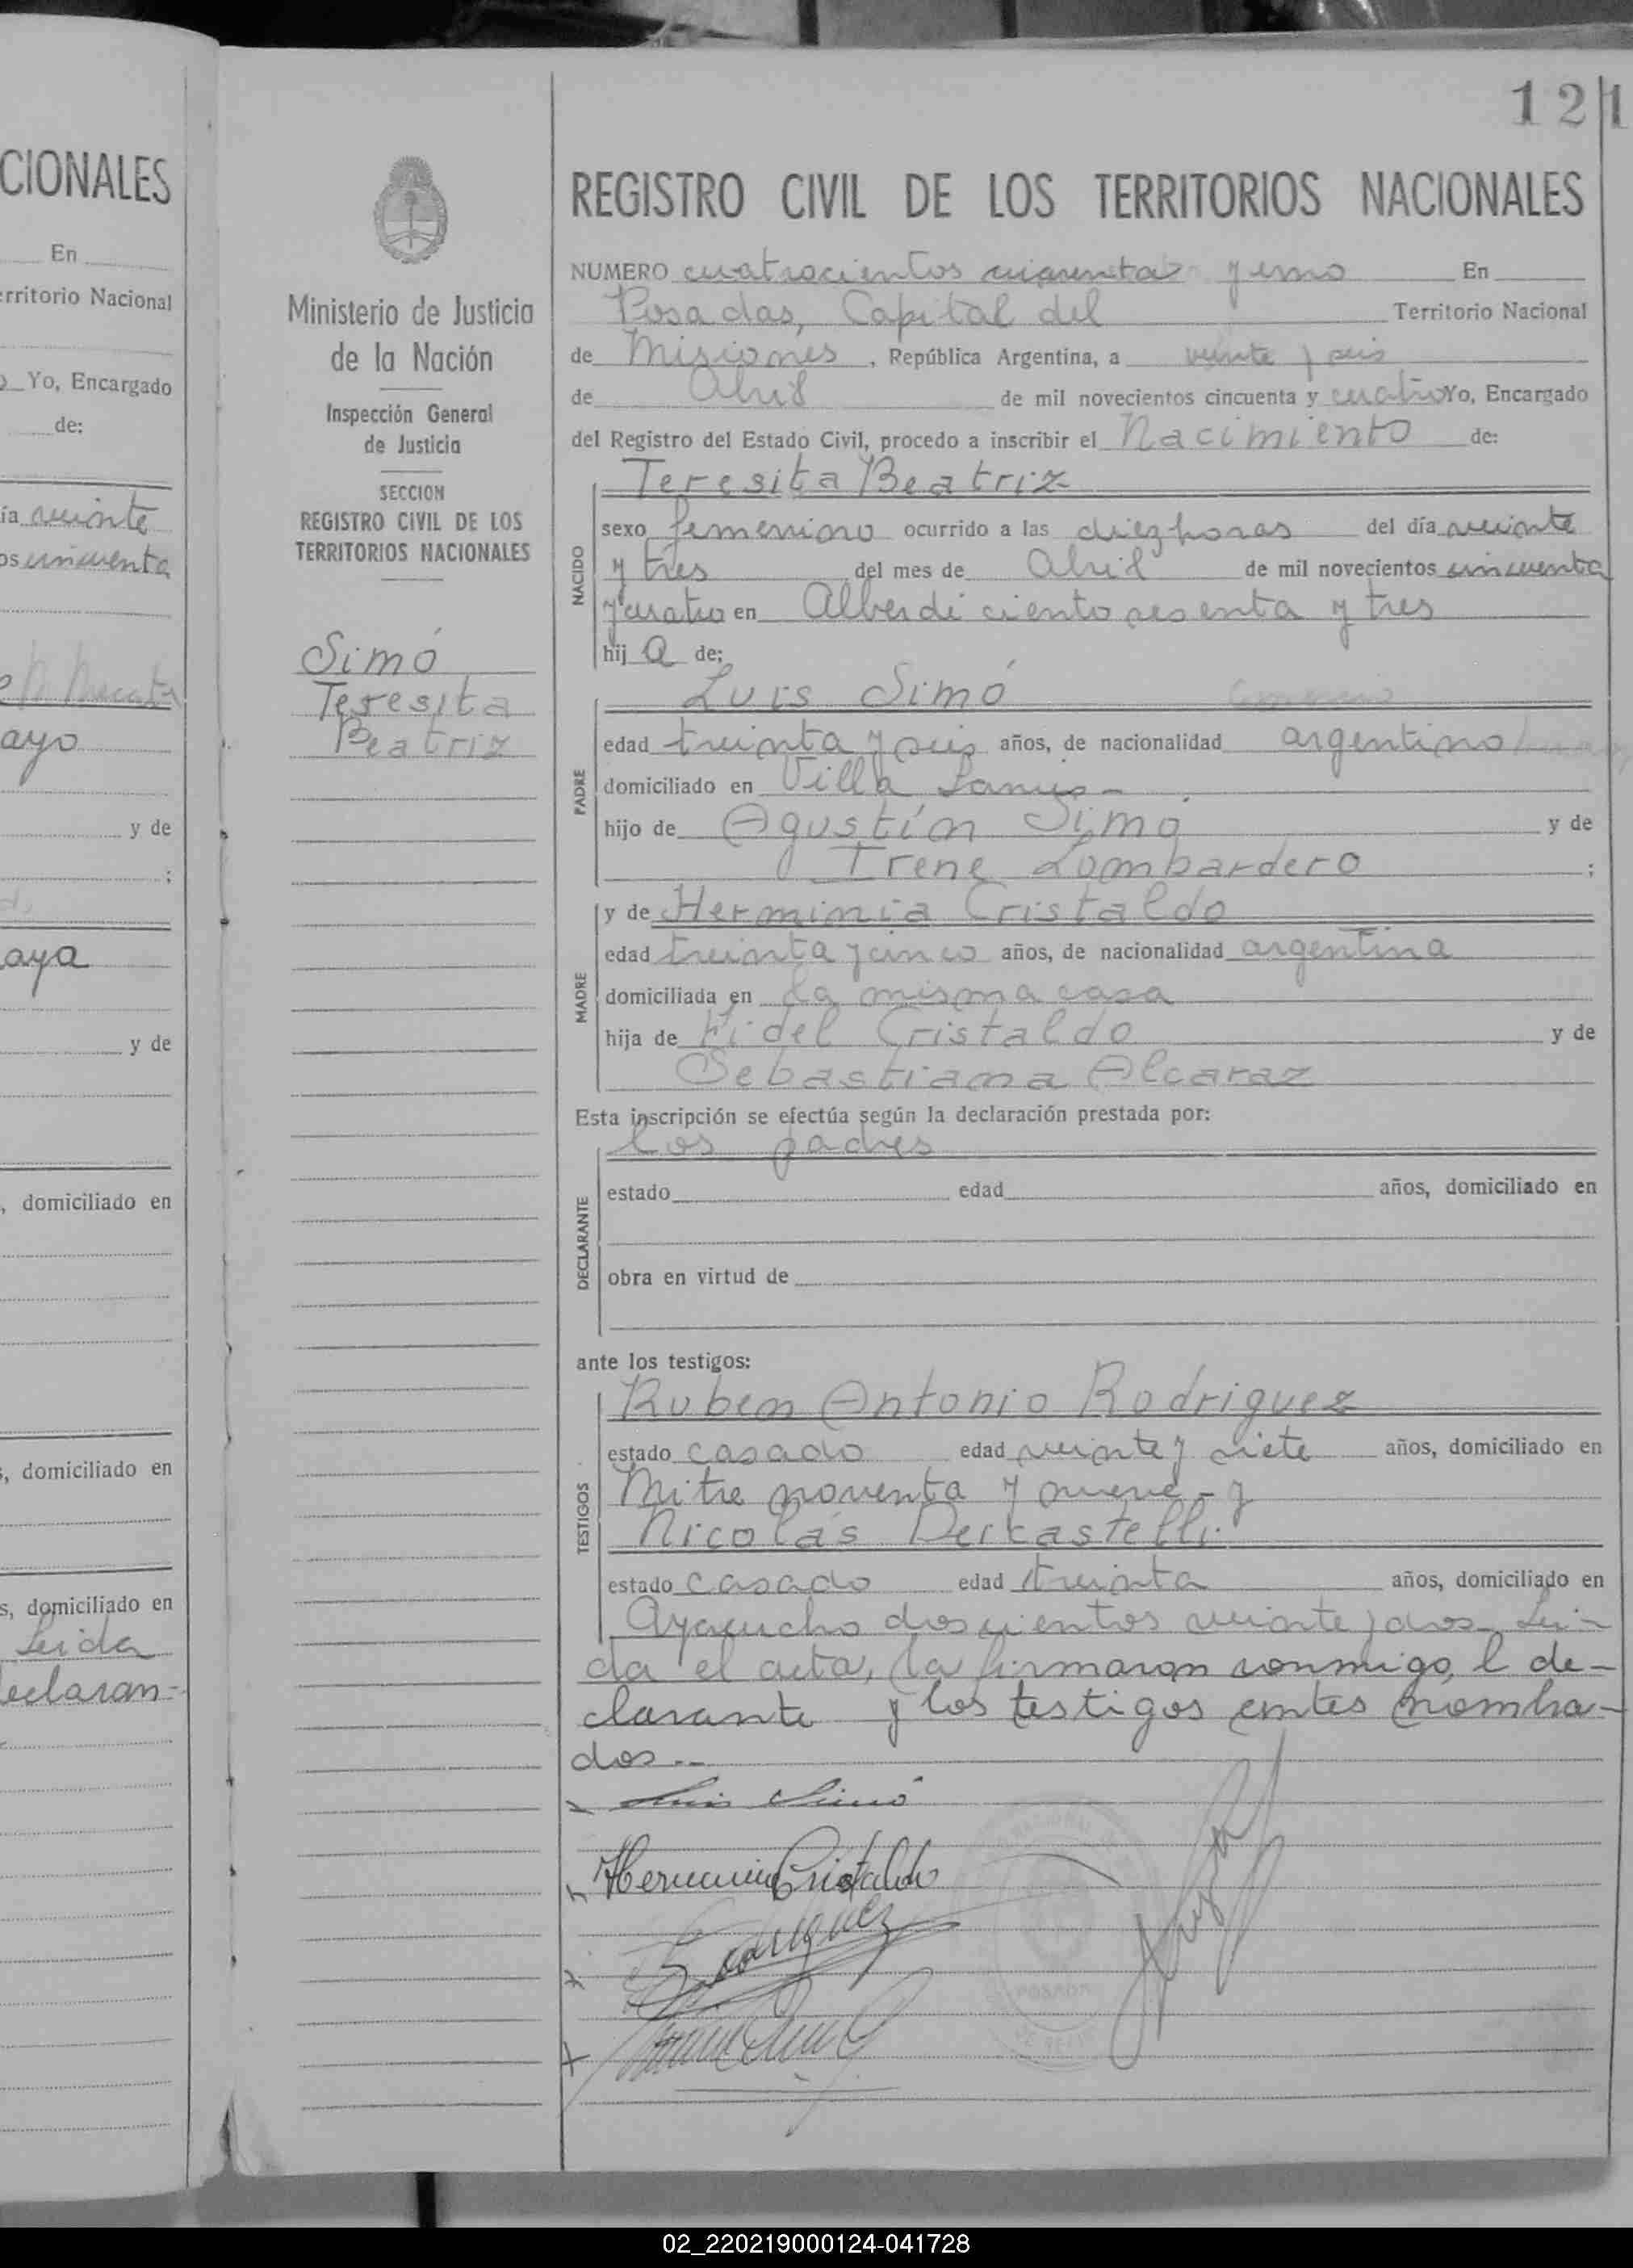 CIONALES
En
erritorio Nacional
Yo, Encargado
de:
ía veinte
os cincuenta
ayo
y de
;
aya
y de
, domiciliado en
s, domiciliado en
s, domiciliado en
Leida
eclaran-
Ministerio de Justicia
de la Nación
Inspección General
de Justicia
SECCION
REGISTRO CIVIL DE LOS
TERRITORIOS NACIONALES
Simó
Teresita
Beatriz
121
REGISTRO CIVIL DE LOS TERRITORIOS NACIONALES
NUMERO cuatrocientos cuarenta y uno En
Posadas, Capital del Territorio Nacional
de Misiones, República Argentina, a veinte y seis
de Abril de mil novecientos cincuenta y cuatro Yo, Encargado
del Registro del Estado Civil, procedo a inscribir el Nacimiento de:
Teresita Beatriz
NACIDO
sexo femenino ocurrido a las diez horas del día veinte
y tres del mes de Abril de mil novecientos cincuenta
y cuatro en Alberdi ciento sesenta y tres
hij a de:
Luis Simó
PADRE
edad treinta y seis años, de nacionalidad argentino
domiciliado en Villa Lanus-
hijo de Agustín Simó y de
Irene Lombardero ;
y de Herminia Cristaldo
MADRE
edad treinta y cinco años, de nacionalidad argentina
domiciliada en la misma casa
hija de Fidel Cristaldo y de
Sebastiana Alcaraz
Esta inscripción se efectúa según la declaración prestada por:
los padres
DECLARANTE
estado edad años, domiciliado en
obra en virtud de
ante los testigos:
Ruben Antonio Rodriguez
TESTIGOS
estado casado edad veinte y siete años, domiciliado en
Mitre noventa y nueve - y
Nicolás Dercastelli
estado casado edad treinta años, domiciliado en
Ayacucho doscientos veinte y dos- Lei-
da el acta, la firmaron conmigo, l de-
clarante y los testigos antes nombra-
dos.--
Luis Simó
Herminia Cristaldo
Rodriguez
POSADAS
02_220219000124-041728